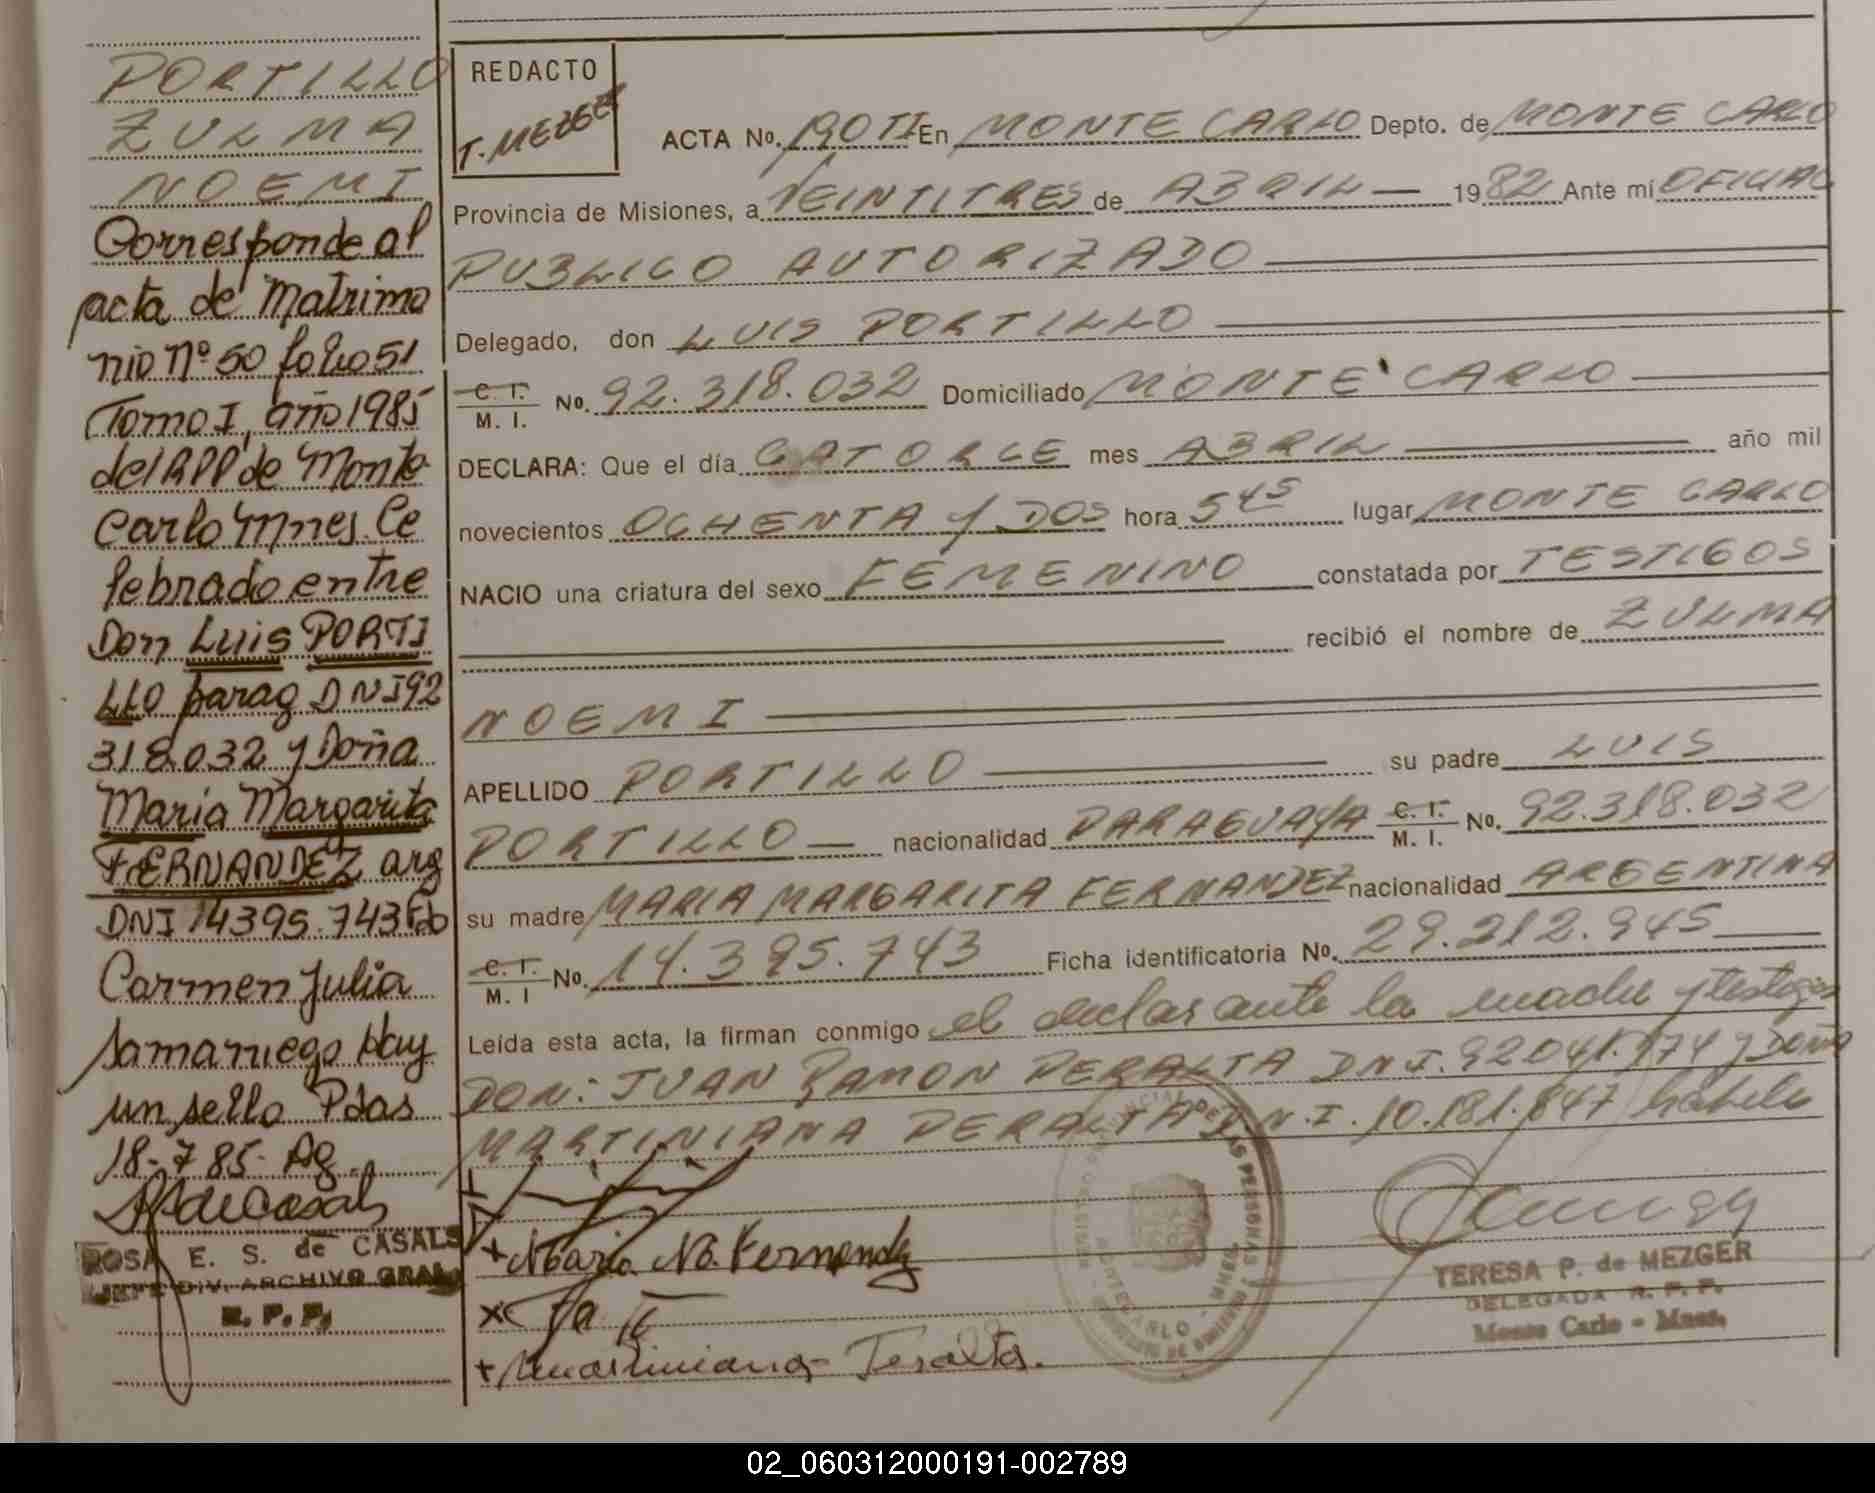 PORTILLO
ZULMA
NOEMI
Corresponde al
acta de Matrimo
nio Nº 50 folio 51
Tomo I, año 1985
del RPP de Monte
Carlo Mnes. Ce
lebrado entre
Don Luis PORTI
LLO parag DNI 92
318.032 y Doña
Maria Margarita
FERNANDEZ arg
DNI 14395.743 Fdo
Carmen Julia
Samaniego hay
un sello Pdas
18-7 85- Ag.
ROSA E. S. de CASALS
JEFE DIV. ARCHIVO GRAL
R. P. P.
REDACTO
T. MEZGER
ACTA No. 190 TI En MONTE CARLO Depto. de MONTE CARLO
Provincia de Misiones, a VEINTITRES de ABRIL — 1982 Ante mí OFICIAL
PUBLICO AUTORIZADO
Delegado, don LUIS PORTILLO
C. I. M. I. No. 92.318.032 Domiciliado MONTE CARLO
DECLARA: Que el día CATORCE mes ABRIL año mil
novecientos OCHENTA Y DOS hora 5 45 lugar MONTE CARLO
NACIO una criatura del sexo FEMENINO constatada por TESTIGOS
recibió el nombre de ZULMA
NOEMI
APELLIDO PORTILLO su padre LUIS
PORTILLO — nacionalidad PARAGUAYA C. I. M. I. No. 92.318.032
su madre MARIA MARGARITA FERNANDEZ nacionalidad ARGENTINA
C. I. M. I No. 14.395.743 Ficha identificatoria No. 29.212.945
Leída esta acta, la firman conmigo el declarante la madre y testigos
DON: JUAN RAMON PERALTA DNI. 92041.974 y DOÑA
MARTINIANA PERALTA D.N.I. 10.181.847 habiles
+ Maria Ma. Fernandez
+ Martiniana Peralta.
TERESA P. de MEZGER
DELEGADA R. P. P.
Monte Carlo - Mnes.
02_060312000191-002789